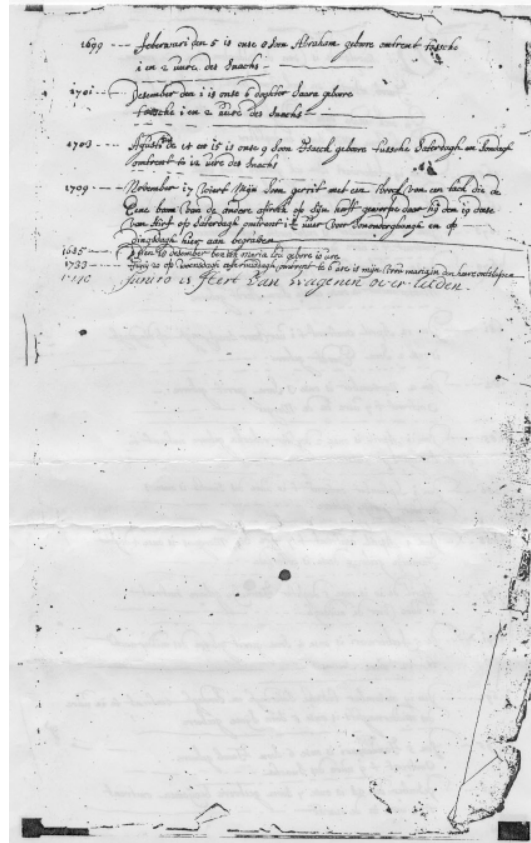 1699 --- Feberwari den 5 is onse 8 soon Abraham gebore omtrent tussche
1 en 2 uure des snachs
1701 --- Desember den 1 is onse 6 doghter Saara gebore
tussche 1 en 2 uure des snachs
1703 --- Agusti de 14 en 15 is onse 9 soon Isaeck gebore tussche Saterdagh en Sondagh
omtrent te 12 ure des snachs
1709 --- November 17 wiert mijn soon gerrit met een van een tack die de
Eene bom van de andere op sijn gewerpe daer hij den 19 dito
van stirf op Saterdagh omtrent 1½ uur voor Sonondergangh en op
dingsdagh hier aen begraben
1685 --- den 10 desember maria gebore
1733 --- 20 op woensdagh omtrent te 6 ure is mijn maria in den heere ontslapen
1740 Juni 10 is Van Wagenen over leeden.